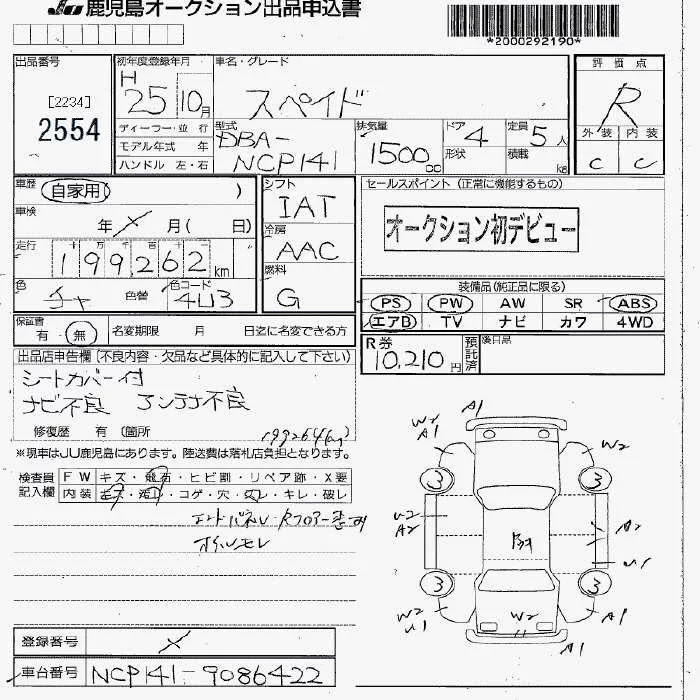 JU 鹿児島オークション出品申込書
*2000292190*
出品番号
[2234]
2554
初年度登録年月
H
25 10月
車名・グレード
スペイド
評価点
R
外装 内装
C C
ディーラー・並行
モデル年式 年
ハンドル 左・右
型式
DBA-
NCP141
排気量
1500cc
ドア 4
形状
定員 5人
積載 kg
車歴 自家用 )
車検 年 月( 日)
走行 十 万 千 百 十
199,262 km
色 チャ 色替 色コード
4U3
シフト
IAT
冷房
AAC
燃料
G
セールスポイント (正常に機能するもの)
オークション初デビュー
装備品(純正品に限る)
PS PW AW SR ABS
エアB TV ナビ カワ 4WD
保証書
有・無 名変期限 月 日迄に名変できる方
R券
10,210円
預託済
後日品
出品店申告欄(不良内容・欠品など具体的に記入して下さい)
シートカバー付
ナビ不良 アンテナ不良
修復歴 有 (箇所 199264(km)
※現車はJU鹿児島にあります。陸送費は落札店負担となります。
検査員
記入欄
FW キズ・飛石・ヒビ割・リペア跡・X要
内装 キズ・汚レ・コゲ・穴・スレ・キレ・破レ
エンドパネル・Rフロアー
オイルモレ
A1
W2
A1
W2
3
3
U2
A2
A2
U1
3
3
W2
U1
W2
A1
A1
登録番号
車台番号 NCP141-9086422